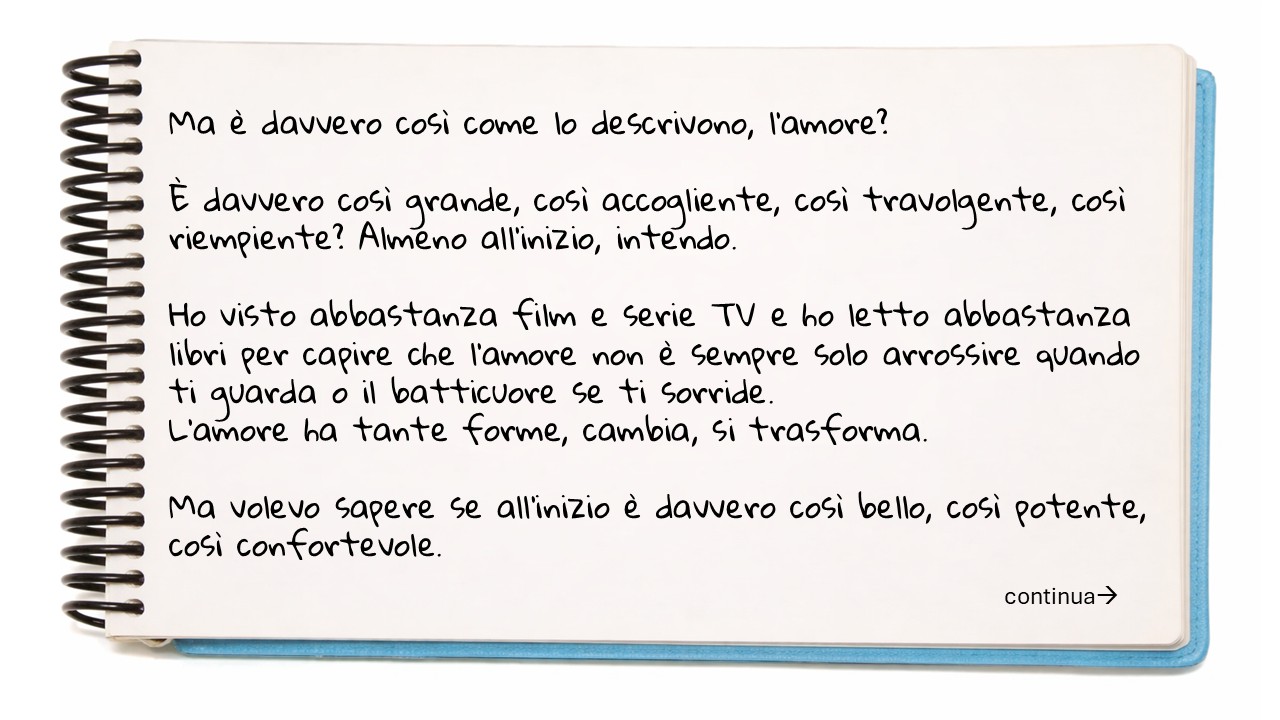 Ma è davvero così come lo descrivono, l'amore?
È davvero così grande, così accogliente, così travolgente, così
riempiente? Almeno all'inizio, intendo.
Ho visto abbastanza film e serie TV e ho letto abbastanza
libri per capire che l'amore non è sempre solo arrossire quando
ti guarda o il batticuore se ti sorride.
L'amore ha tante forme, cambia, si trasforma.
Ma volevo sapere se all'inizio è davvero così bello, così potente,
così confortevole.
continua→